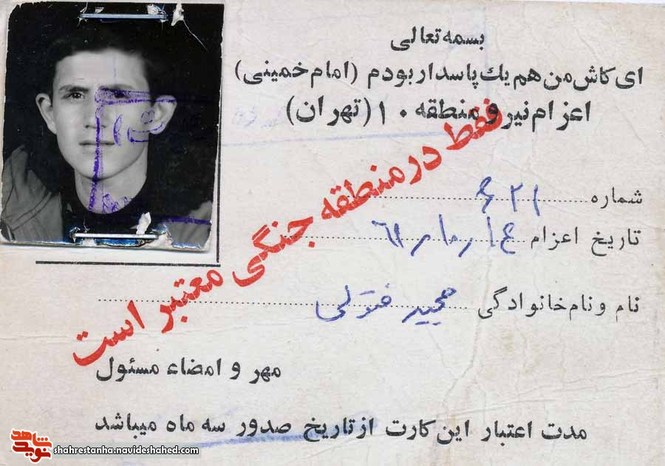 بسمه تعالی
ای کاش من هم یك پاسدار بودم (امام خمینی)
اعزام نیرو منطقه ۱۰ (تهران)
فقط در منطقه جنگی معتبر است
شماره
تاریخ اعزام
نام و نام خانوادگی مجید
مهر و امضاء مسئول
مدت اعتبار این کارت از تاریخ صدور سه ماه میباشد
نوید شاهد
shahrestanha.navideshahed.com